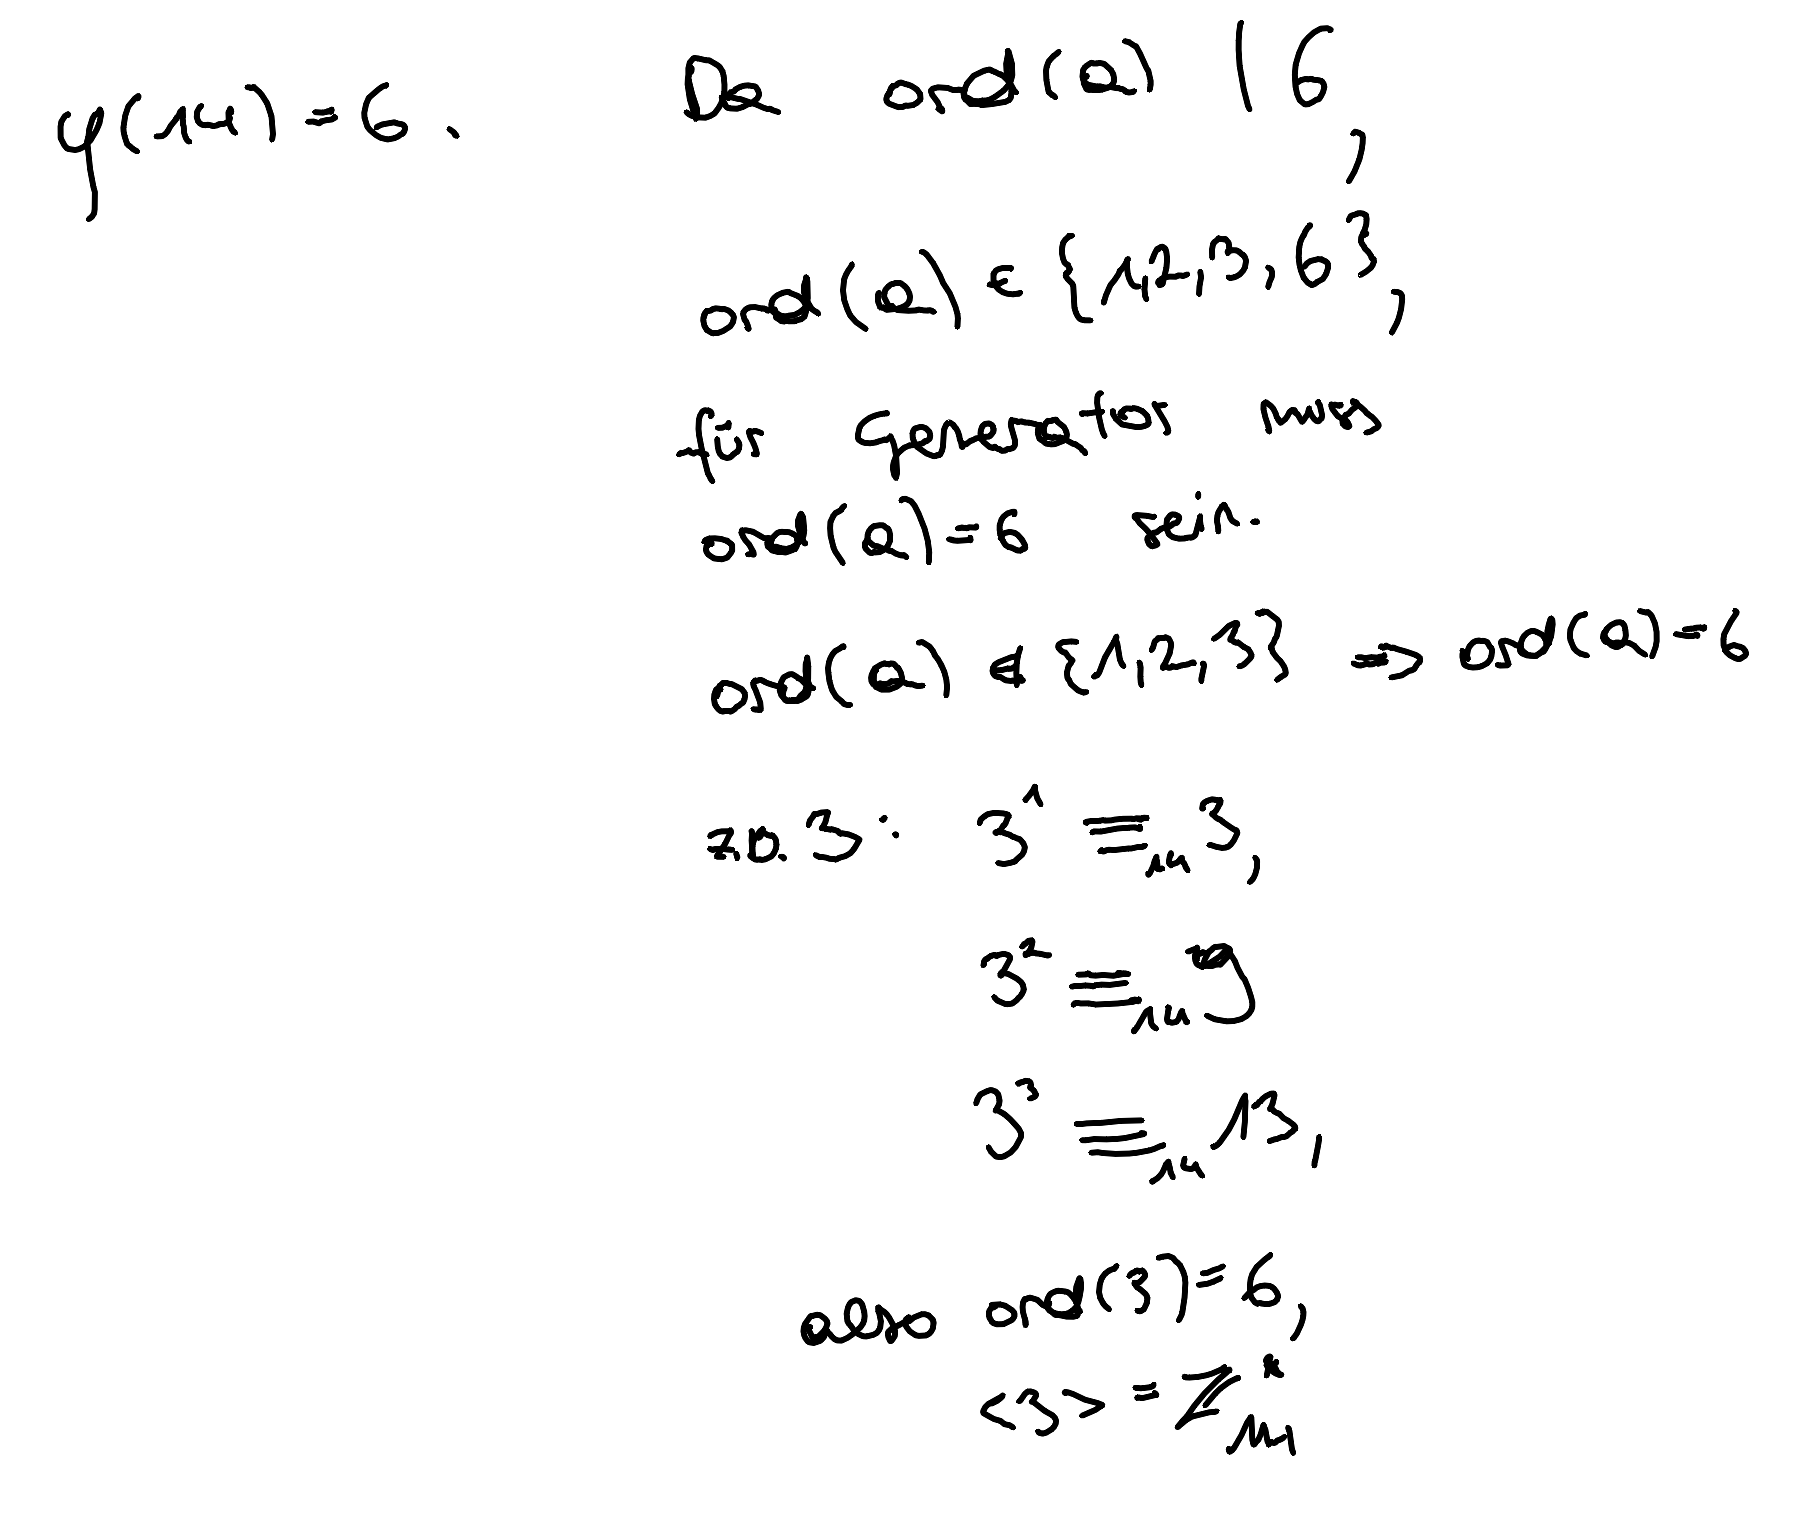 φ(14) = 6. Da ord(a) | 6,
ord(a) ∈ {1,2,3,6},
für Generator muss
ord(a)=6 sein.
ord(a) ∉ {1,2,3} => ord(a)=6
z.B. 3: 3^1 ≡_14 3,
3^2 ≡_14 9
3^3 ≡_14 13,
also ord(3)=6,
<3> = ℤ*_14